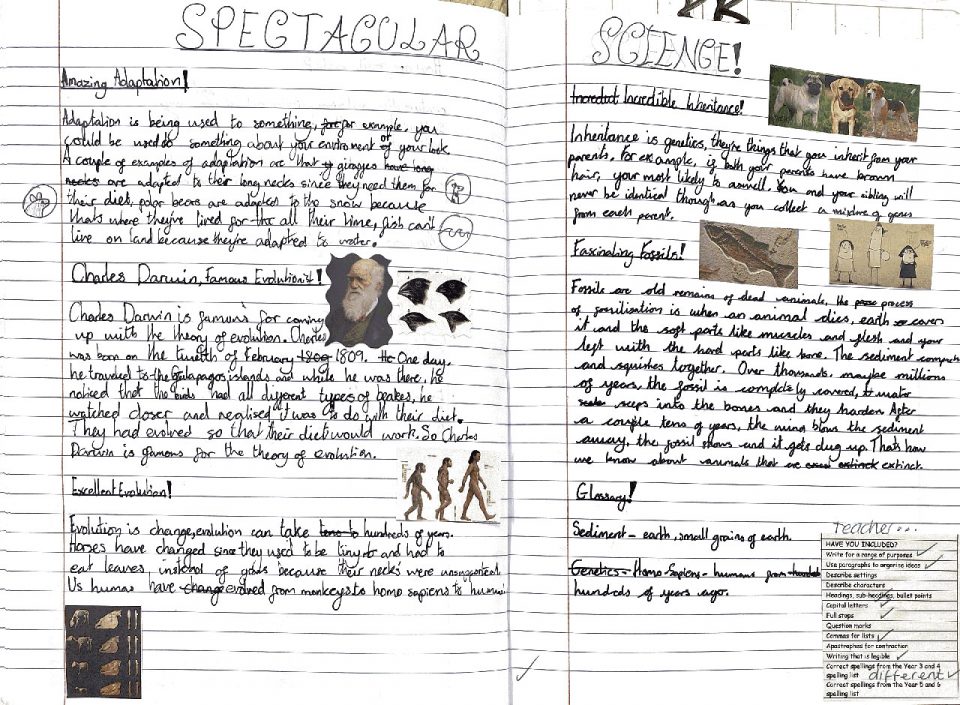 SPECTACULAR
Amazing Adaptation!
Adaptation is being used to something, for example, you
could be used to something about your enviroment or of your look
A couple of examples of adaptation are that giraffes have long
necks are adapted to their long necks since they need them for
their diet, polar bears are adapted to the snow because
thats where they're lived for all their time, fish can't
live on land because they're adapted to water.
Charles Darwin, Famous Evolutionist!
Charles Darwin is famous for coming
up with the theory of evolution. Charles
was born on the twelfth of February 1809 1809. He One day,
he traveled to the Galapagos islands and while he was there, he
noticed that the birds had all different types of beakes, he
watched closer and realised it was to do with their diet.
They had evolved so that their diet would work. So Charles
Darwin is famous for the theory of evolution.
Excellent Evolution!
Evolution is change, evolution can take tens to hundreds of years.
Horses have changed since they used to be tiny and had to
eat leaves instead of because their necks were unsupported
Us humans have change evolved from monkeys to homo sapiens to humans
SCIENCE!
Incredible Inheritance!
Inheritance is genetics, they're things that you inherit from your
parents. For example, if both your parents have brown
hair, your most likely to aswell. You and your sibling will
never be identical though as you collect a mixture of genes
from each parent.
Fascinating Fossils!
Fossils are old remains of dead animals, the process
of fossilisation is when an animal dies, earth covers
it and the soft parts like muscles and flesh and your
left with the hard parts like bone. The sediment compacts
and squishes together. Over thousands, maybe millions
of years, the fossil is completly covered, water
seeps into the bones and they harden After
a couple tens of years, the wind blows the sediment
away, the fossil shows and it gets dug up. Thats how
we know about animals that are extinct extinct.
Glossary!
Sediment - earth, small grains of earth.
Genetics - Homo Sapiens - humans from
hundreds of years ago.
Teacher...
HAVE YOU INCLUDED?
Write for a range of purposes
Use paragraphs to organise ideas
Describe settings
Describe characters
Headings, sub-headings, bullet points
Capital letters
Full stops
Question marks
Commas for lists
Apostrophes for contraction
Writing that is legible
Correct spellings from the Year 3 and 4
spelling list different
Correct spellings from the Year 5 and 6
spelling list